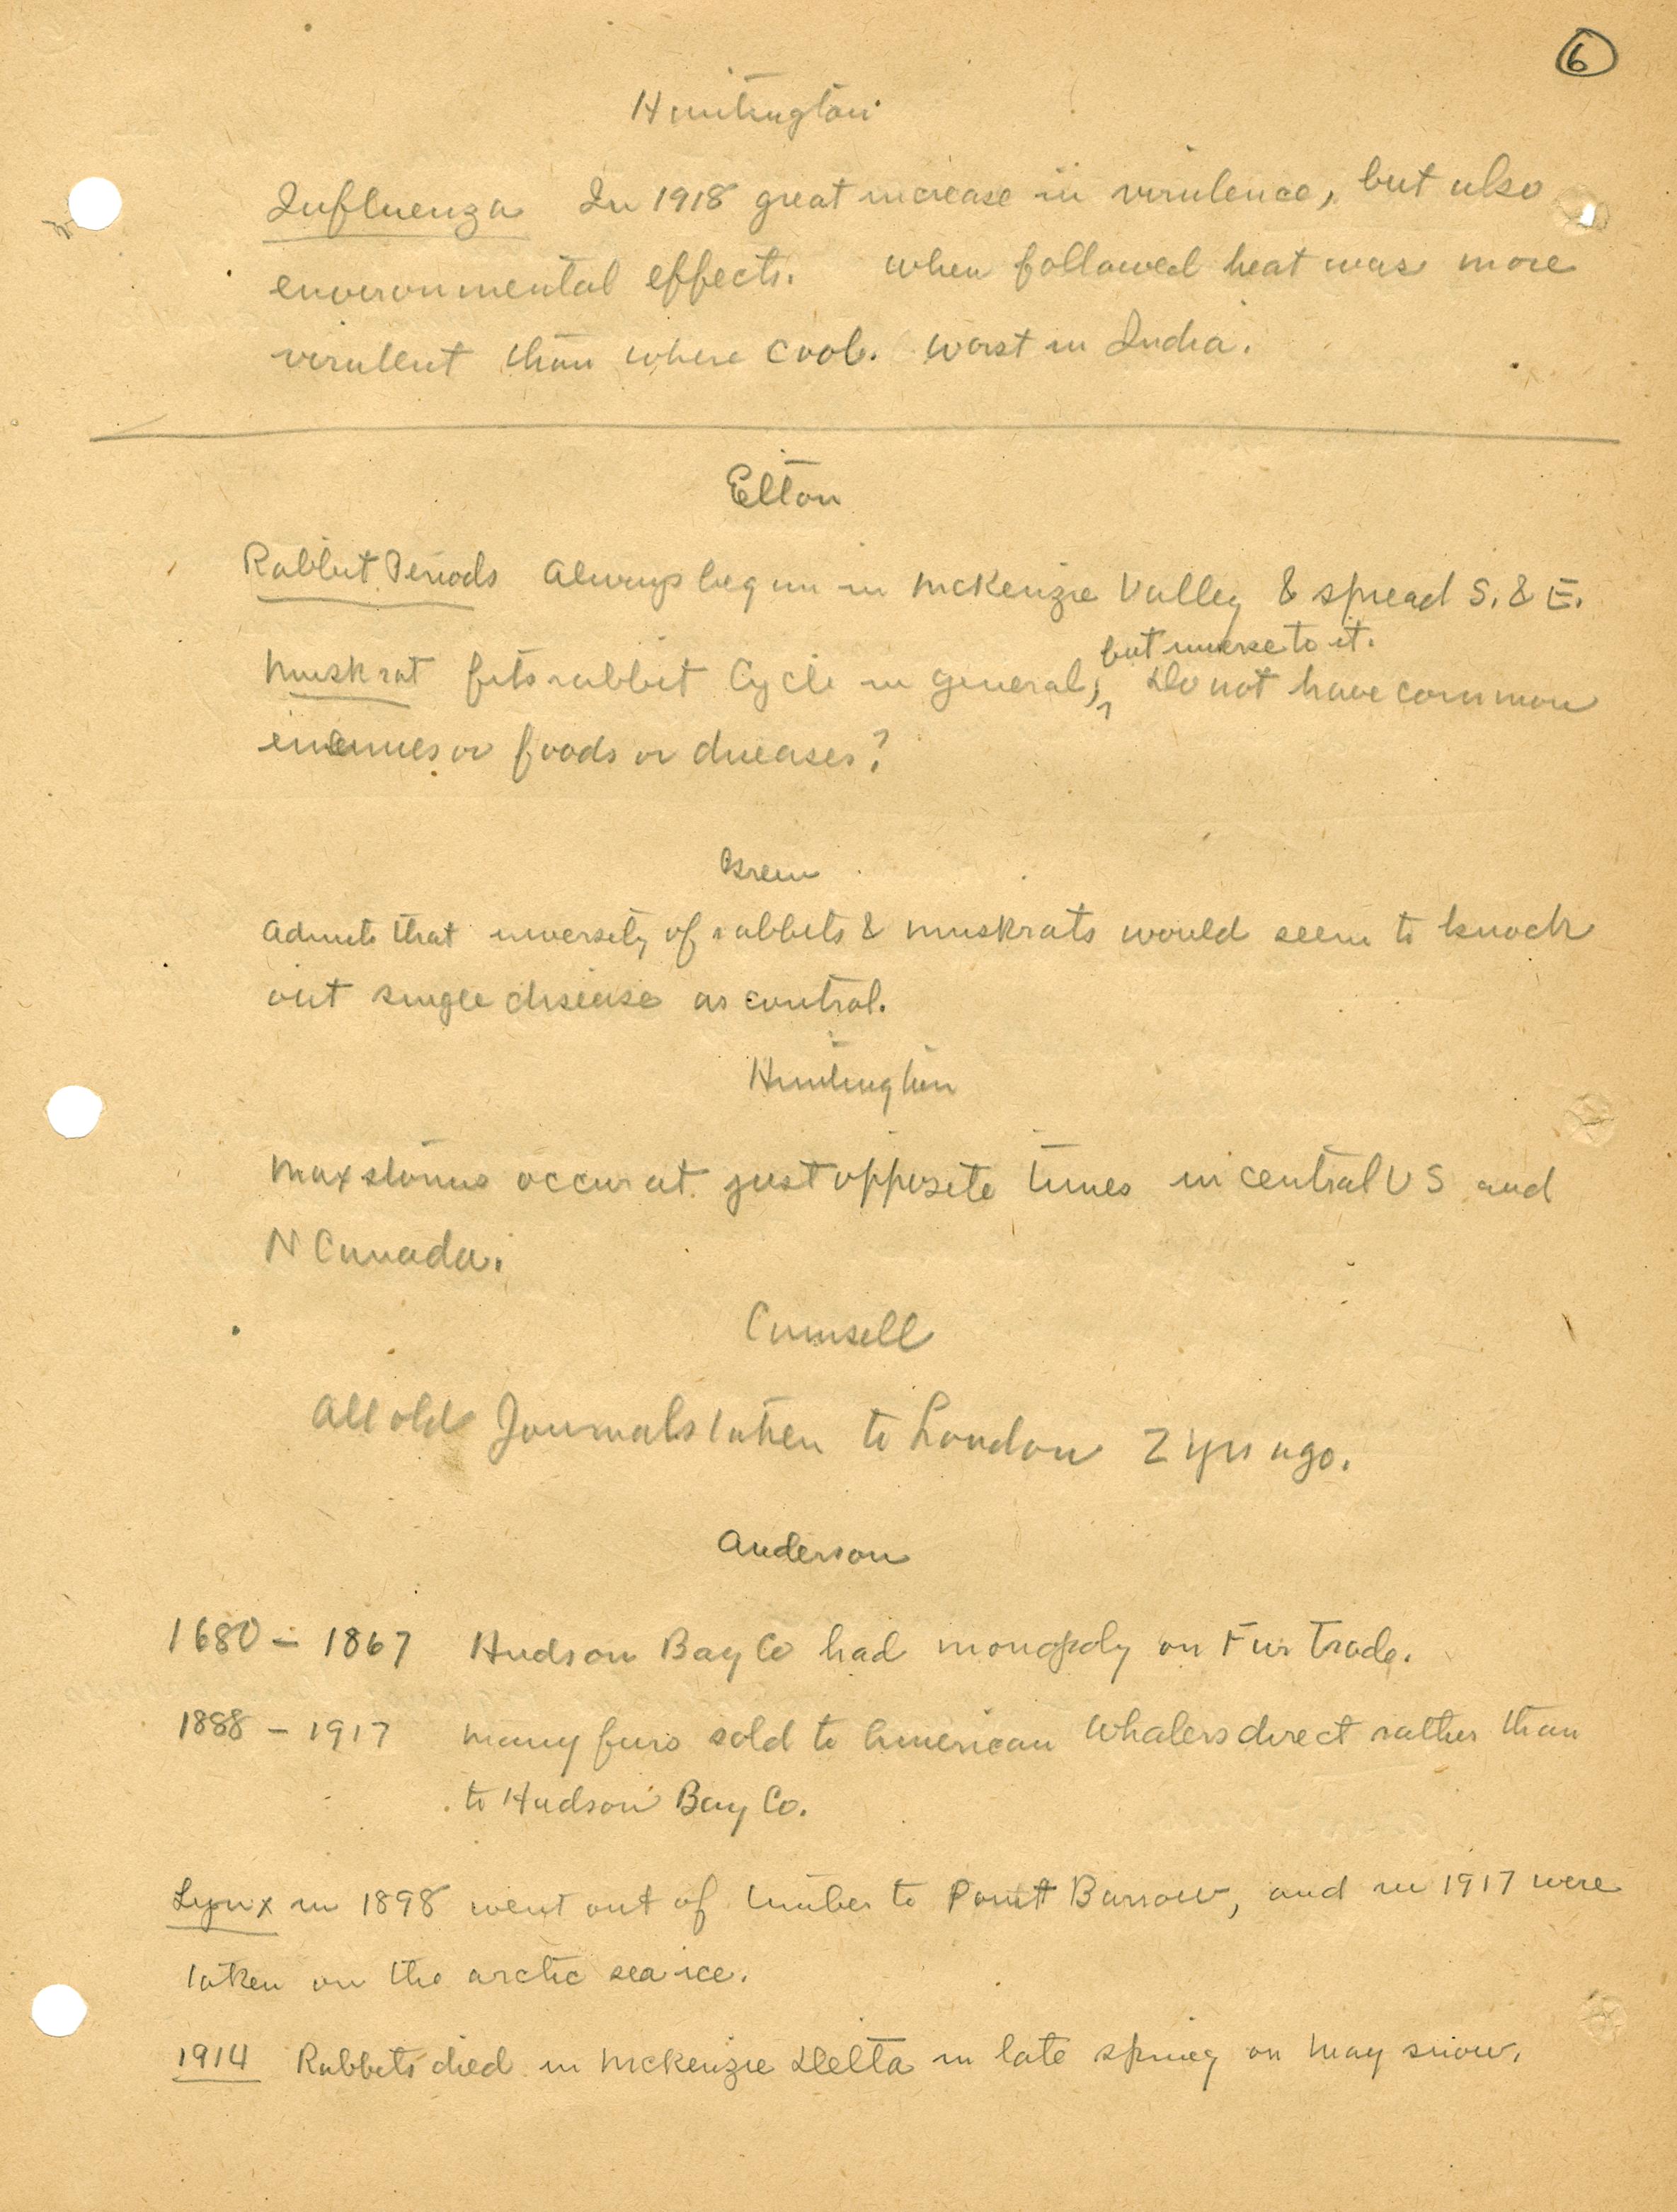 6
Huntington
Influenza In 1918 great increase in virulence, but also
environmental effects. When followed heat was more
virulent than where cool. Worst in India.
Elton
Rabbit Periods Always begun in McKenzie Valley & spread S. & E.
but inverse to it.
Muskrat fits rabbit Cycle in general, Do not have common
enemies or foods or diseases?
Admits that inversity of rabbits & muskrats would seem to knock
out single disease as control.
Huntington
Max storms occur at just opposite times in central US and
N Canada.
Camsell
All old Journals taken to London 2 yrs ago.
Anderson
1680 – 1867 Hudson Bay Co had monopoly on Fur Trade.
1888 – 1917 Many furs sold to American Whalers direct rather than
to Hudson Bay Co.
Lynx in 1898 went out of timber to Point Barrow, and in 1917 were
taken on the arctic sea ice.
1914 Rabbits died in McKenzie Delta in late spring on May snow.